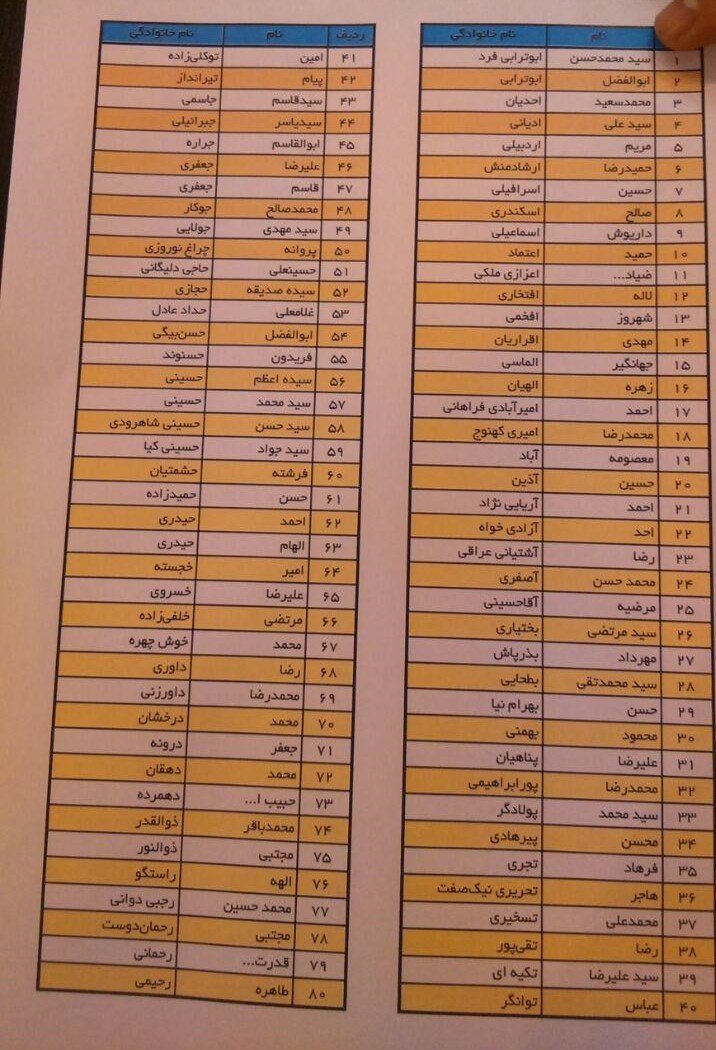 نام نام خانوادگی
۱ سید محمدحسن ابوترابی فرد
۲ ابوالفضل ابوترابی
۳ محمدسعید احدیان
۴ سید علی ادیانی
۵ مریم اردبیلی
۶ حمیدرضا ارشادمنش
۷ حسین اسرافیلی
۸ صالح اسکندری
۹ داریوش اسماعیلی
۱۰ حمید اعتماد
۱۱ ضیاء... اعزازی ملکی
۱۲ لاله افتخاری
۱۳ شهروز افخمی
۱۴ مهدی اقراریان
۱۵ جهانگیر الماسی
۱۶ زهره الهیان
۱۷ احمد امیرآبادی فراهانی
۱۸ محمدرضا امیری کهنوج
۱۹ معصومه آباد
۲۰ حسین آذین
۲۱ احمد آریایی نژاد
۲۲ احد آزادی خواه
۲۳ رضا آشتیانی عراقی
۲۴ محمد حسن آصفری
۲۵ مرضیه آقاحسینی
۲۶ سید مرتضی بختیاری
۲۷ مهرداد بذرپاش
۲۸ سید محمدتقی بطحایی
۲۹ حسن بهرام نیا
۳۰ محمود بهمنی
۳۱ علیرضا پناهیان
۳۲ محمدرضا پورابراهیمی
۳۳ سید محمد پولادگر
۳۴ محسن پیرهادی
۳۵ فرهاد تجری
۳۶ هاجر تحریری نیک‌صفت
۳۷ محمدعلی تسخیری
۳۸ رضا تقی‌پور
۳۹ سید علیرضا تکیه ای
۴۰ عباس توانگر
ردیف نام نام خانوادگی
۴۱ امین توکلی‌زاده
۴۲ پیام تیرانداز
۴۳ سیدقاسم جاسمی
۴۴ سیدیاسر جبرائیلی
۴۵ ابوالقاسم جراره
۴۶ علیرضا جعفری
۴۷ قاسم جعفری
۴۸ محمدصالح جوکار
۴۹ سید مهدی جولایی
۵۰ پروانه چراغ نوروزی
۵۱ حسینعلی حاجی دلیگانی
۵۲ سیده صدیقه حجازی
۵۳ غلامعلی حداد عادل
۵۴ ابوالفضل حسن‌بیگی
۵۵ فریدون حسنوند
۵۶ سیده اعظم حسینی
۵۷ سید محمد حسینی
۵۸ سید حسن حسینی شاهرودی
۵۹ سید جواد حسینی کیا
۶۰ فرشته حشمتیان
۶۱ حسن حمیدزاده
۶۲ احمد حیدری
۶۳ الهام حیدری
۶۴ امیر خجسته
۶۵ علیرضا خسروی
۶۶ مرتضی خلفی‌زاده
۶۷ محمد خوش چهره
۶۸ رضا داوری
۶۹ محمدرضا داورزنی
۷۰ محمد درخشان
۷۱ جعفر درونه
۷۲ محمد دهقان
۷۳ حبیب ا... دهمرده
۷۴ محمدباقر ذوالقدر
۷۵ مجتبی ذوالنور
۷۶ الهه راستگو
۷۷ محمد حسین رجبی دوانی
۷۸ مجتبی رحمان‌دوست
۷۹ قدرت... رحمانی
۸۰ طاهره رحیمی